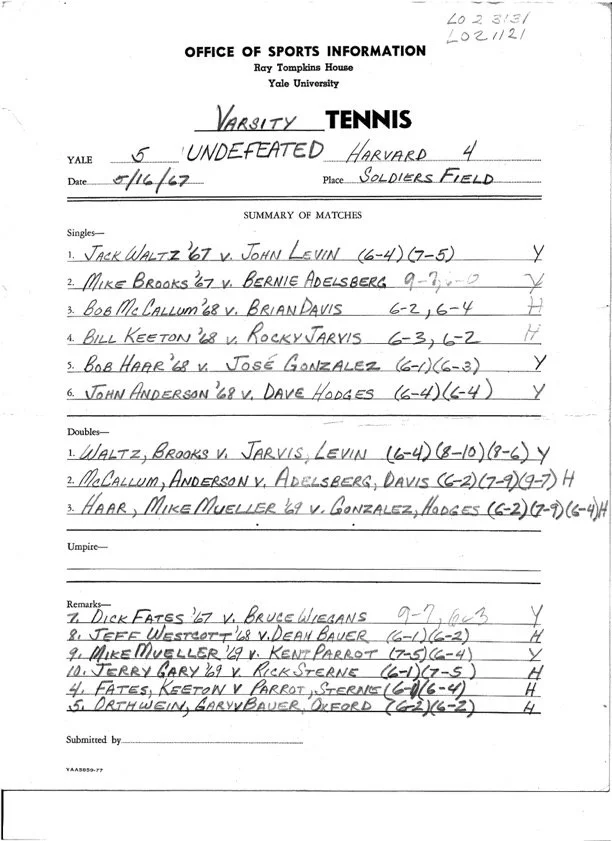 LO 2 3131
LO 2 1121
OFFICE OF SPORTS INFORMATION
Ray Tompkins House
Yale University
VARSITY TENNIS
YALE 5 UNDEFEATED HARVARD 4
Date 5/16/67 Place SOLDIERS FIELD
SUMMARY OF MATCHES
Singles—
1. JACK WALTZ '67 V. JOHN LEVIN (6-4)(7-5) Y
2. MIKE BROOKS '67 V. BERNIE ADELSBERG 9-7, 6-0 Y
3. BOB MCCALLUM '68 V. BRIAN DAVIS 6-2, 6-4 H
4. BILL KEETON '68 V. ROCKY JARVIS 6-3, 6-2 H
5. BOB HAAR '68 V. JOSÉ GONZALEZ (6-1)(6-3) Y
6. JOHN ANDERSON '68 V. DAVE HODGES (6-4)(6-4) Y
Doubles—
1. WALTZ, BROOKS V. JARVIS, LEVIN (6-4)(8-10)(8-6) Y
2. MCCALLUM, ANDERSON V. ADELSBERG, DAVIS (6-2)(7-9)(9-7) H
3. HAAR, MIKE MUELLER '69 V. GONZALEZ, HODGES (6-2)(7-9)(6-4) H
Umpire—
Remarks—
7. DICK FATES '67 V. BRUCE WIEGANS 9-7, 6-3 Y
8. JEFF WESTCOTT '68 V. DEAN BAUER (6-1)(6-2) H
9. MIKE MUELLER '69 V. KENT PARROT (7-5)(6-4) Y
10. JERRY GARY '69 V. RICK STERNE (6-1)(7-5) H
4. FATES, KEETON V PARROT, STERNE (6-1)(6-4) H
5. ORTHWEIN, GARY V BAUER, OXFORD (6-2)(6-2) H
Submitted by
YAA5859-77